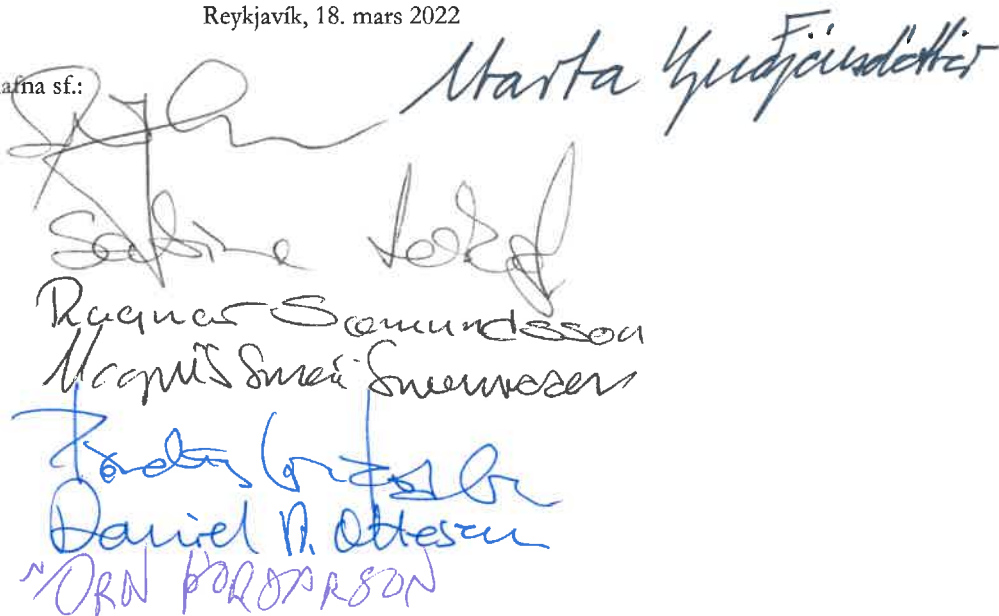 Reykjavík, 18. mars 2022
afna sf.:
Marta Guðjónsdóttir
Sabine Leskopf
Ragnar Sæmundsson
Magnús Smári Smárason
Daníel A. Ottesen
ÖRN ÞÓRÐARSON